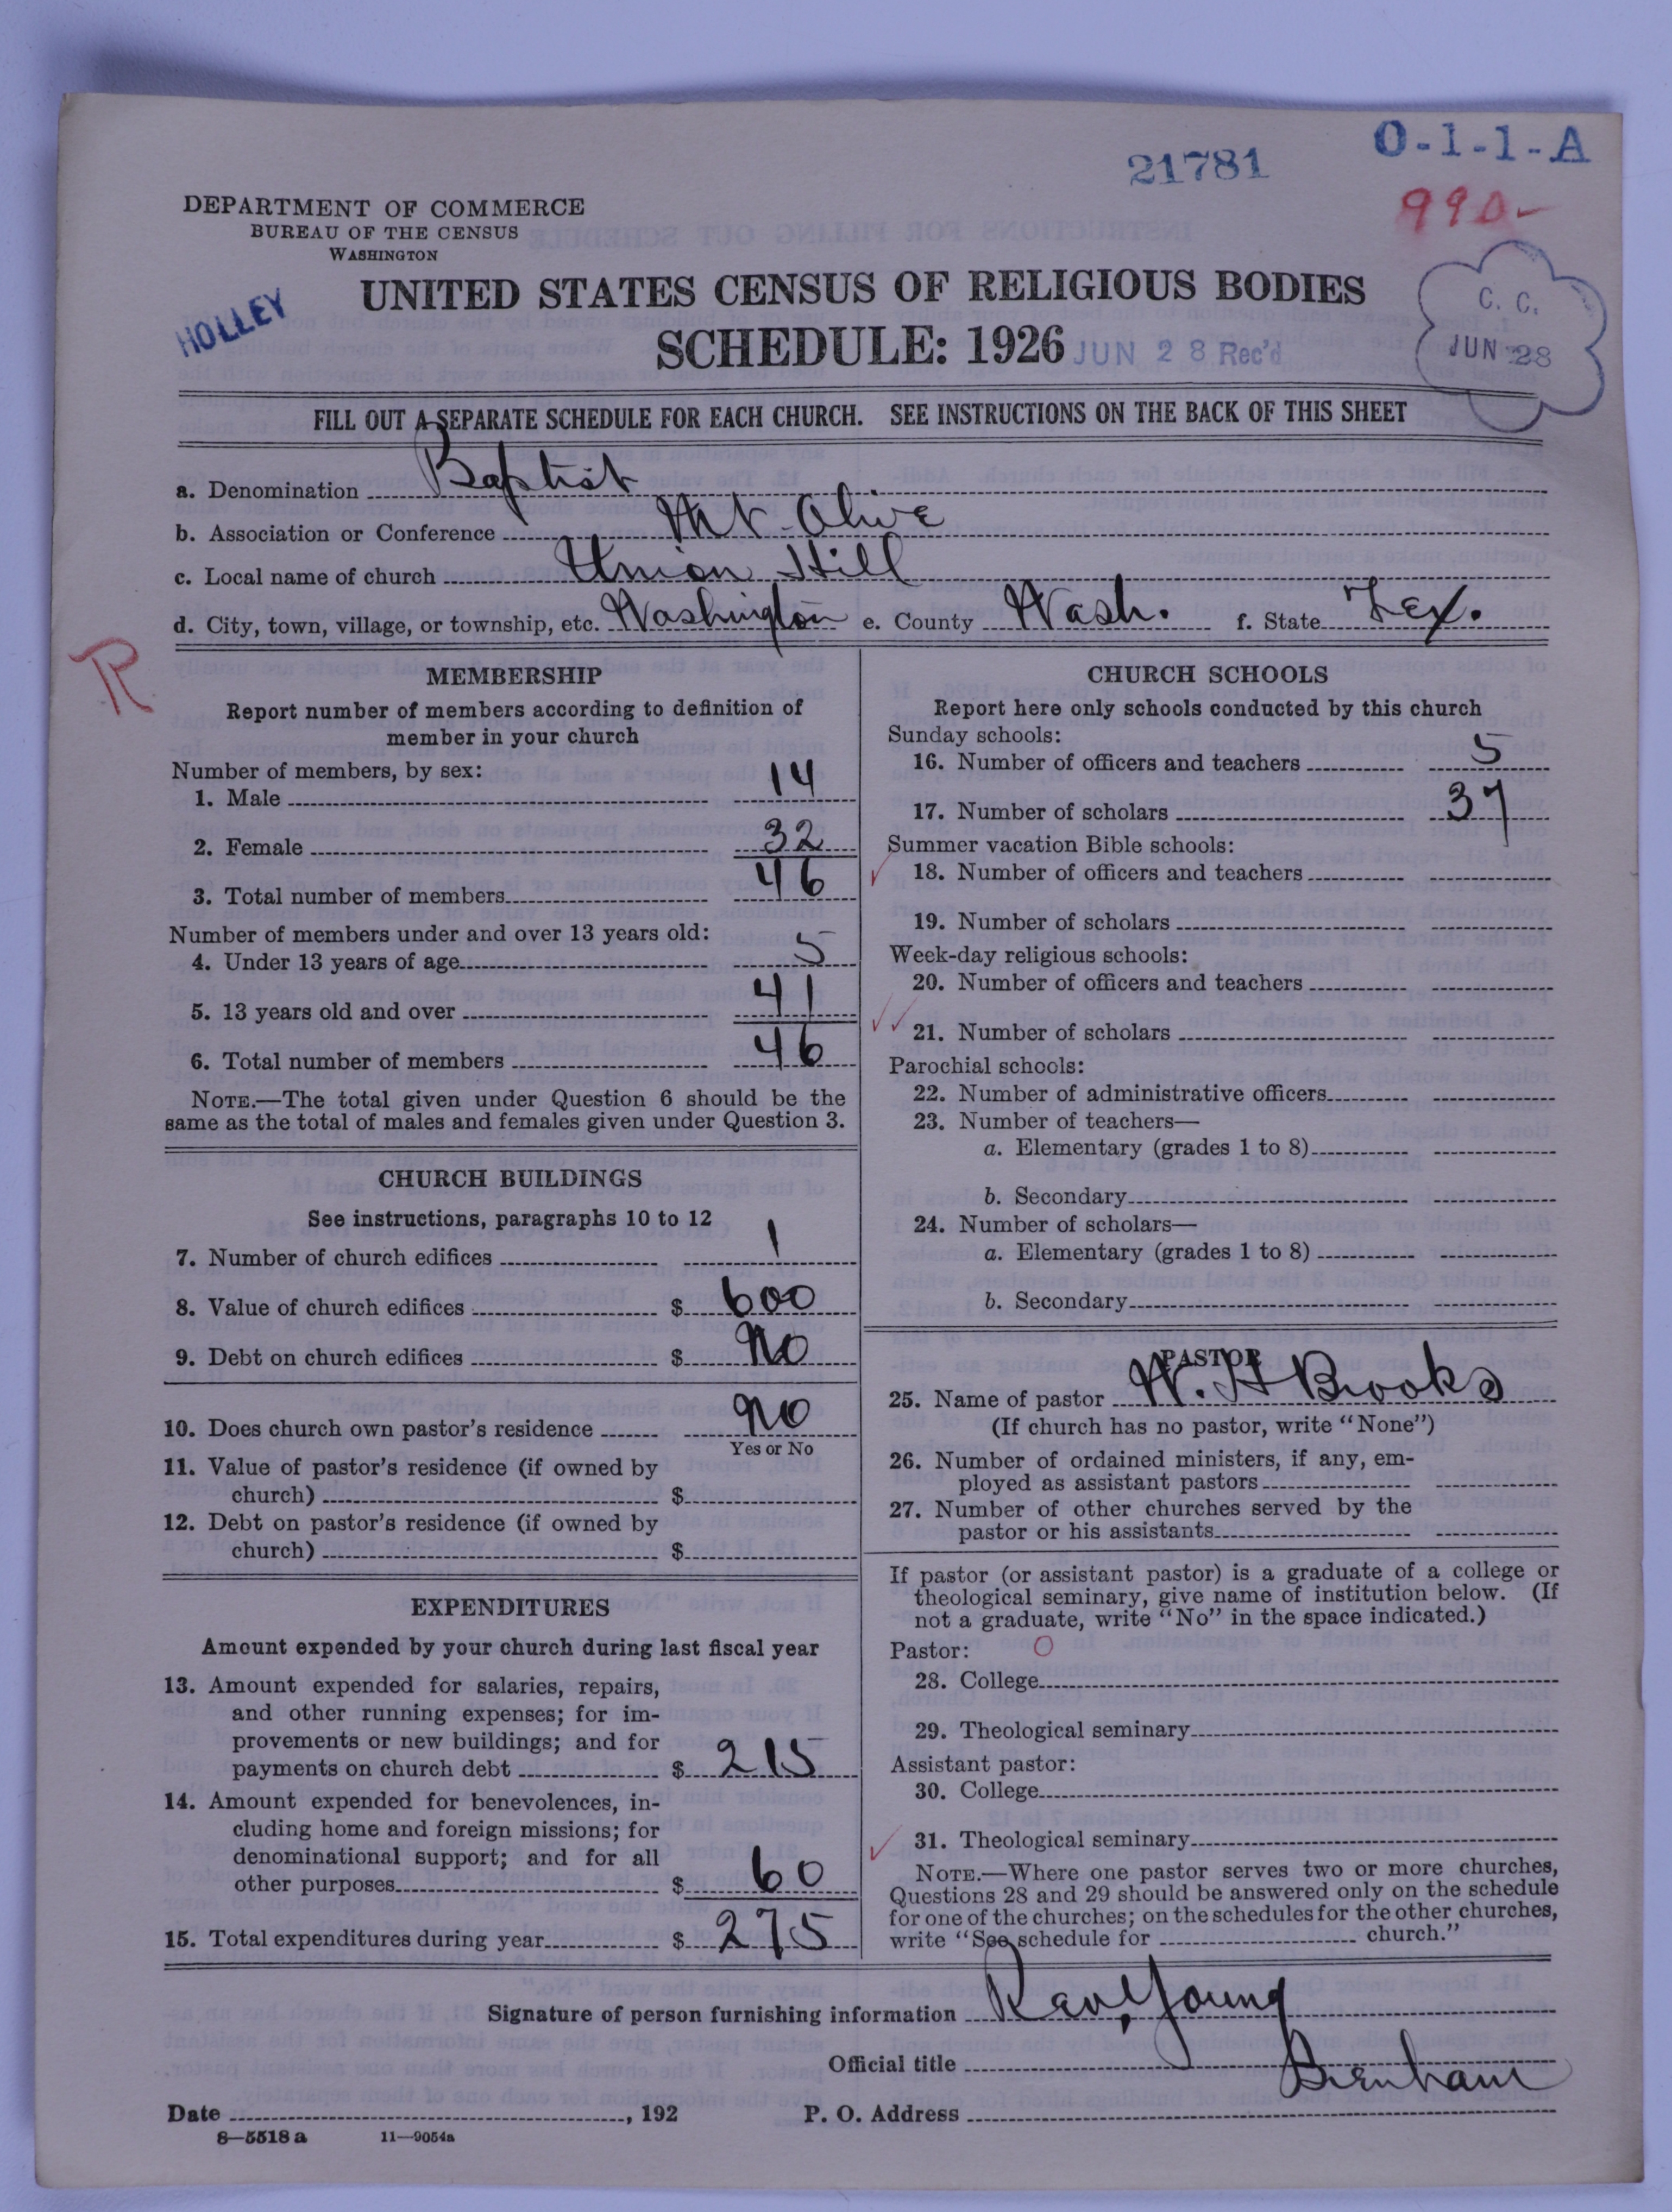 21781
O-1-1-A
990-
DEPARTMENT OF COMMERCE
BUREAU OF THE CENSUS
WASHINGTON
HOLLEY
UNITED STATES CENSUS OF RELIGIOUS BODIES
SCHEDULE: 1926
JUN 28 Rec'd
C. C.
JUN 28
FILL OUT A SEPARATE SCHEDULE FOR EACH CHURCH. SEE INSTRUCTIONS ON THE BACK OF THIS SHEET
a. Denomination Baptist
b. Association or Conference Mt-Olive
c. Local name of church Union Hill
d. City, town, village, or township, etc. Washington e. County Wash. f. State Tex.
R
MEMBERSHIP
Report number of members according to definition of
member in your church
Number of members, by sex:
1. Male 14
2. Female 32
3. Total number of members 46
Number of members under and over 13 years old:
4. Under 13 years of age 5
5. 13 years old and over 41
6. Total number of members 46
NOTE.—The total given under Question 6 should be the
same as the total of males and females given under Question 3.
CHURCH BUILDINGS
See instructions, paragraphs 10 to 12
7. Number of church edifices 1
8. Value of church edifices $ 600
9. Debt on church edifices $ No
10. Does church own pastor's residence No
Yes or No
11. Value of pastor's residence (if owned by
church) $
12. Debt on pastor's residence (if owned by
church) $
EXPENDITURES
Amount expended by your church during last fiscal year
13. Amount expended for salaries, repairs,
and other running expenses; for im-
provements or new buildings; and for
payments on church debt $ 215
14. Amount expended for benevolences, in-
cluding home and foreign missions; for
denominational support; and for all
other purposes $ 60
15. Total expenditures during year $ 275
CHURCH SCHOOLS
Report here only schools conducted by this church
Sunday schools:
16. Number of officers and teachers 5
17. Number of scholars 37
Summer vacation Bible schools:
18. Number of officers and teachers
19. Number of scholars
Week-day religious schools:
20. Number of officers and teachers
21. Number of scholars
Parochial schools:
22. Number of administrative officers
23. Number of teachers—
a. Elementary (grades 1 to 8)
b. Secondary
24. Number of scholars—
a. Elementary (grades 1 to 8)
b. Secondary
PASTOR
25. Name of pastor W. H Brooks
(If church has no pastor, write "None")
26. Number of ordained ministers, if any, em-
ployed as assistant pastors
27. Number of other churches served by the
pastor or his assistants
If pastor (or assistant pastor) is a graduate of a college or
theological seminary, give name of institution below. (If
not a graduate, write "No" in the space indicated.)
Pastor: O
28. College
29. Theological seminary
Assistant pastor:
30. College
31. Theological seminary
NOTE.—Where one pastor serves two or more churches,
Questions 28 and 29 should be answered only on the schedule
for one of the churches; on the schedules for the other churches,
write "See schedule for church."
Signature of person furnishing information Rev. Young
Official title
Brenham
Date , 192 P. O. Address
8—5518 a 11—9054a